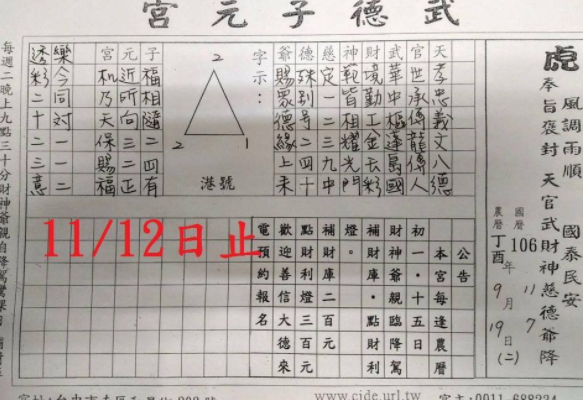 武德子元宮
虎
風調雨順 國泰民安
奉旨褒封 天官武財神慈德爺降
國曆 106 年 11 7
農曆 丁酉 9月 19日 (二)
天孝忠義文八德
官世承傳龍傳人
武華中樞蓬島國
財境勤工金去彩
神範皆相耀光門
慈定一二三九中
德殊別号二四十
爺賜眾德緣上未
字示：
2
2 1
港號
子福相隨二四有
元近所向三二正
宮机乃天保賜福
樂今同対一一二
透彩二十二三意
公告
本宮每逢農曆
初一．十五日
財神爺親臨降駕
補財庫．點財利
燈。
補財庫二百元
點財利燈三百元
歡迎善信大德來
電預約報名
11/12日止
每週二晚上九點三十分財神爺親自降駕
www.cide.url.tw